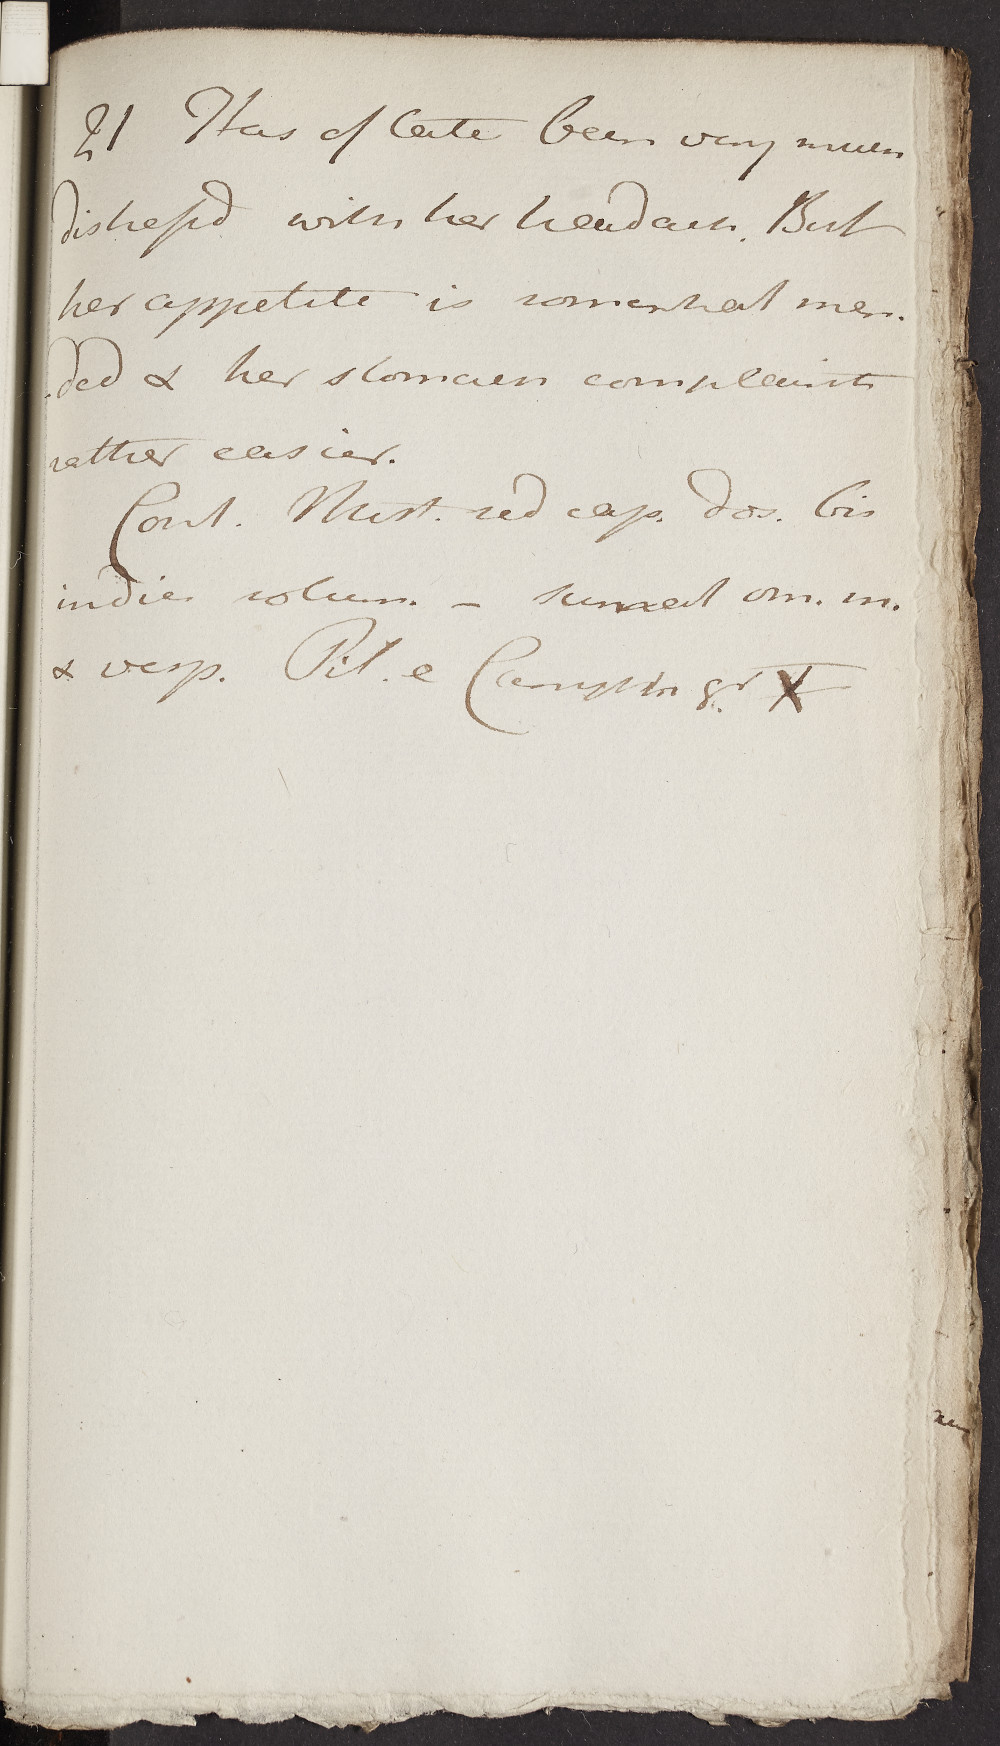 21 Has of late been very much
distressd with her headach. But
her appetite is somewhat men-
-ded & her stomach complaints
rather easier.
Cont. Mist. sed cap. dos. bis
indies solum. – sumat om. m.
& vesp. Pil. e Camph gr X